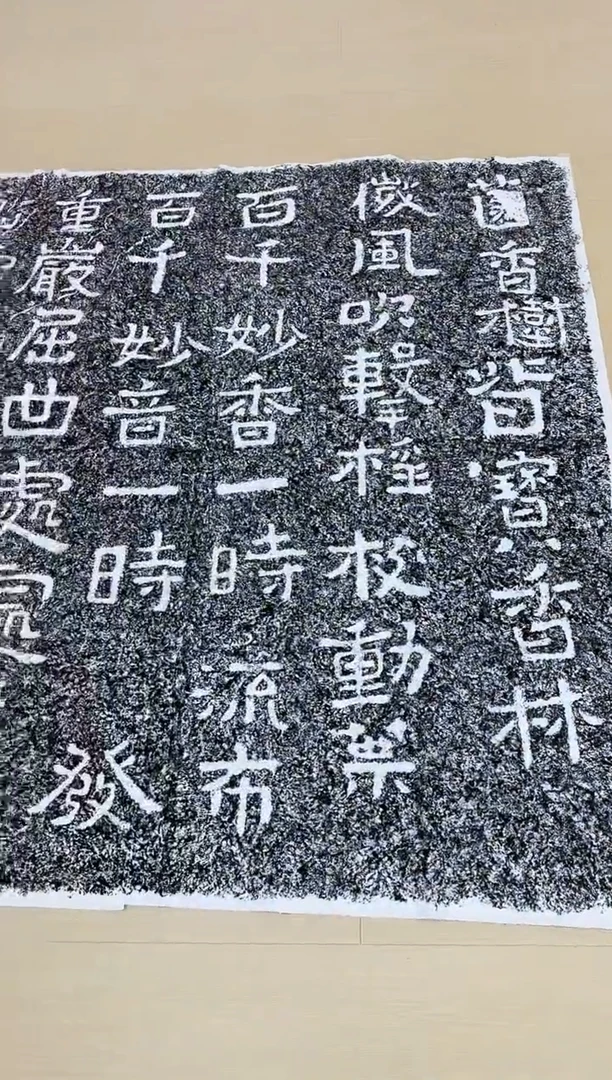 香樹皆寶香林
微風吹擊動
百千妙香一時流布
百千妙音一時發
重巖屈曲處處